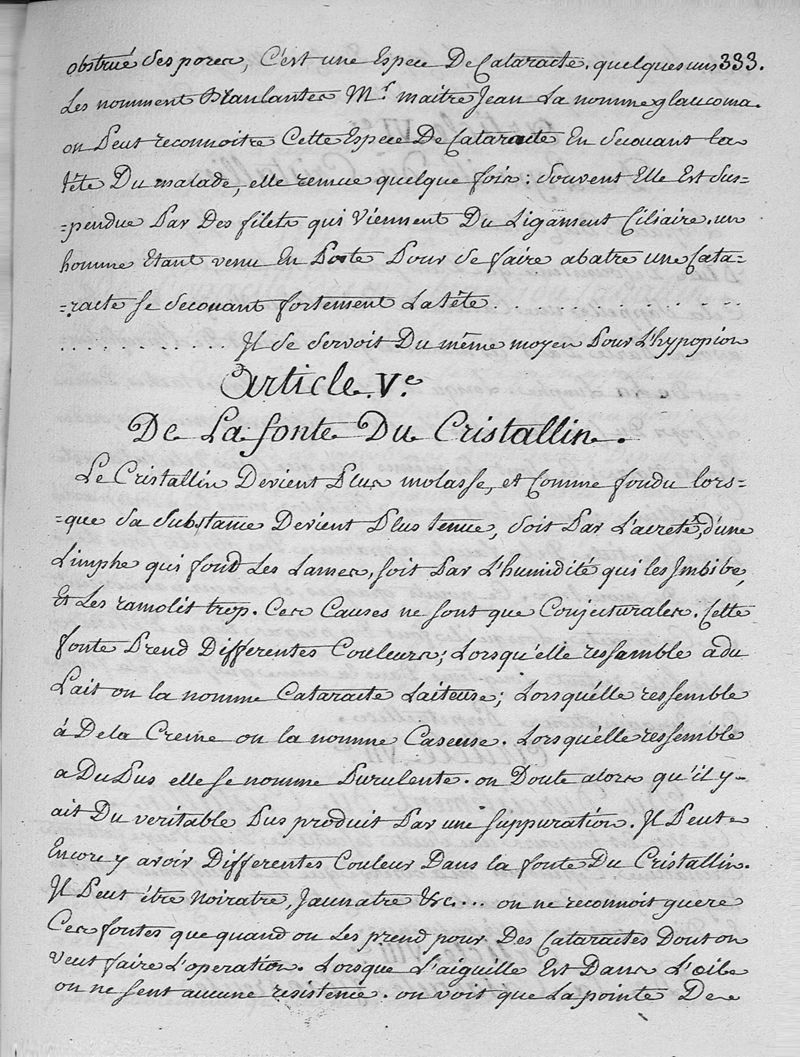 obstrué ses pores, C'est une Espece De Cataracte. quelques uns 333.
Les nomment Branlantes Mr. maitre Jean La nomme glaucoma.
on Peut reconnoitre Cette Espece De Cataracte En secouant la
tête Du malade, elle remue quelque fois: souvent Elle Est sus=
=pendue Par Des filets qui Viennent Du Ligament Ciliaire. un
homme Etant venu En Poste Pour se faire abatre une Cata=
=racte se secouant fortement La tête . . . . . . . . . . . . . .
. . . . . . . . . . . . . Il se servoit Du même moyen Pour L'hypopion
Article. Ve.
De La fonte Du Cristallin.
Le Cristallin Devient Plus molasse, et Comme fondu lors=
=que sa substance Devient Plus tenue, soit Par L'acreté, d'une
Limphe qui fond Les Lames, soit Par L'humidité qui les Imbibe,
Et Les ramolit trop. Ces Causes ne sont que Conjecturales. Cette
fonte Prend Differentes Couleurs; Lorsqu'elle ressemble a du
Lait on la nomme Cataracte Laiteuse; Lorsqu'elle ressemble
á De la Creme on la nomme Caseuse. Lorsqu'elle ressemble
a Du Pus elle se nomme Purulente. on Doute alors qu'il y
ait Du veritable Pus produit Par une suppuration. Il Peut
Encore y avoir Differentes Couleur Dans la fonte Du Cristallin.
Il Peut être noiratre, Jaunatre &c.... on ne reconnoit guere
Ces fontes que quand on Les prend pour Des Cataractes Dont on
veut faire L'operation. Lorsque L'aiguille Est Dans L'oeil
on ne sent aucune resistence. on voit que La pointe De